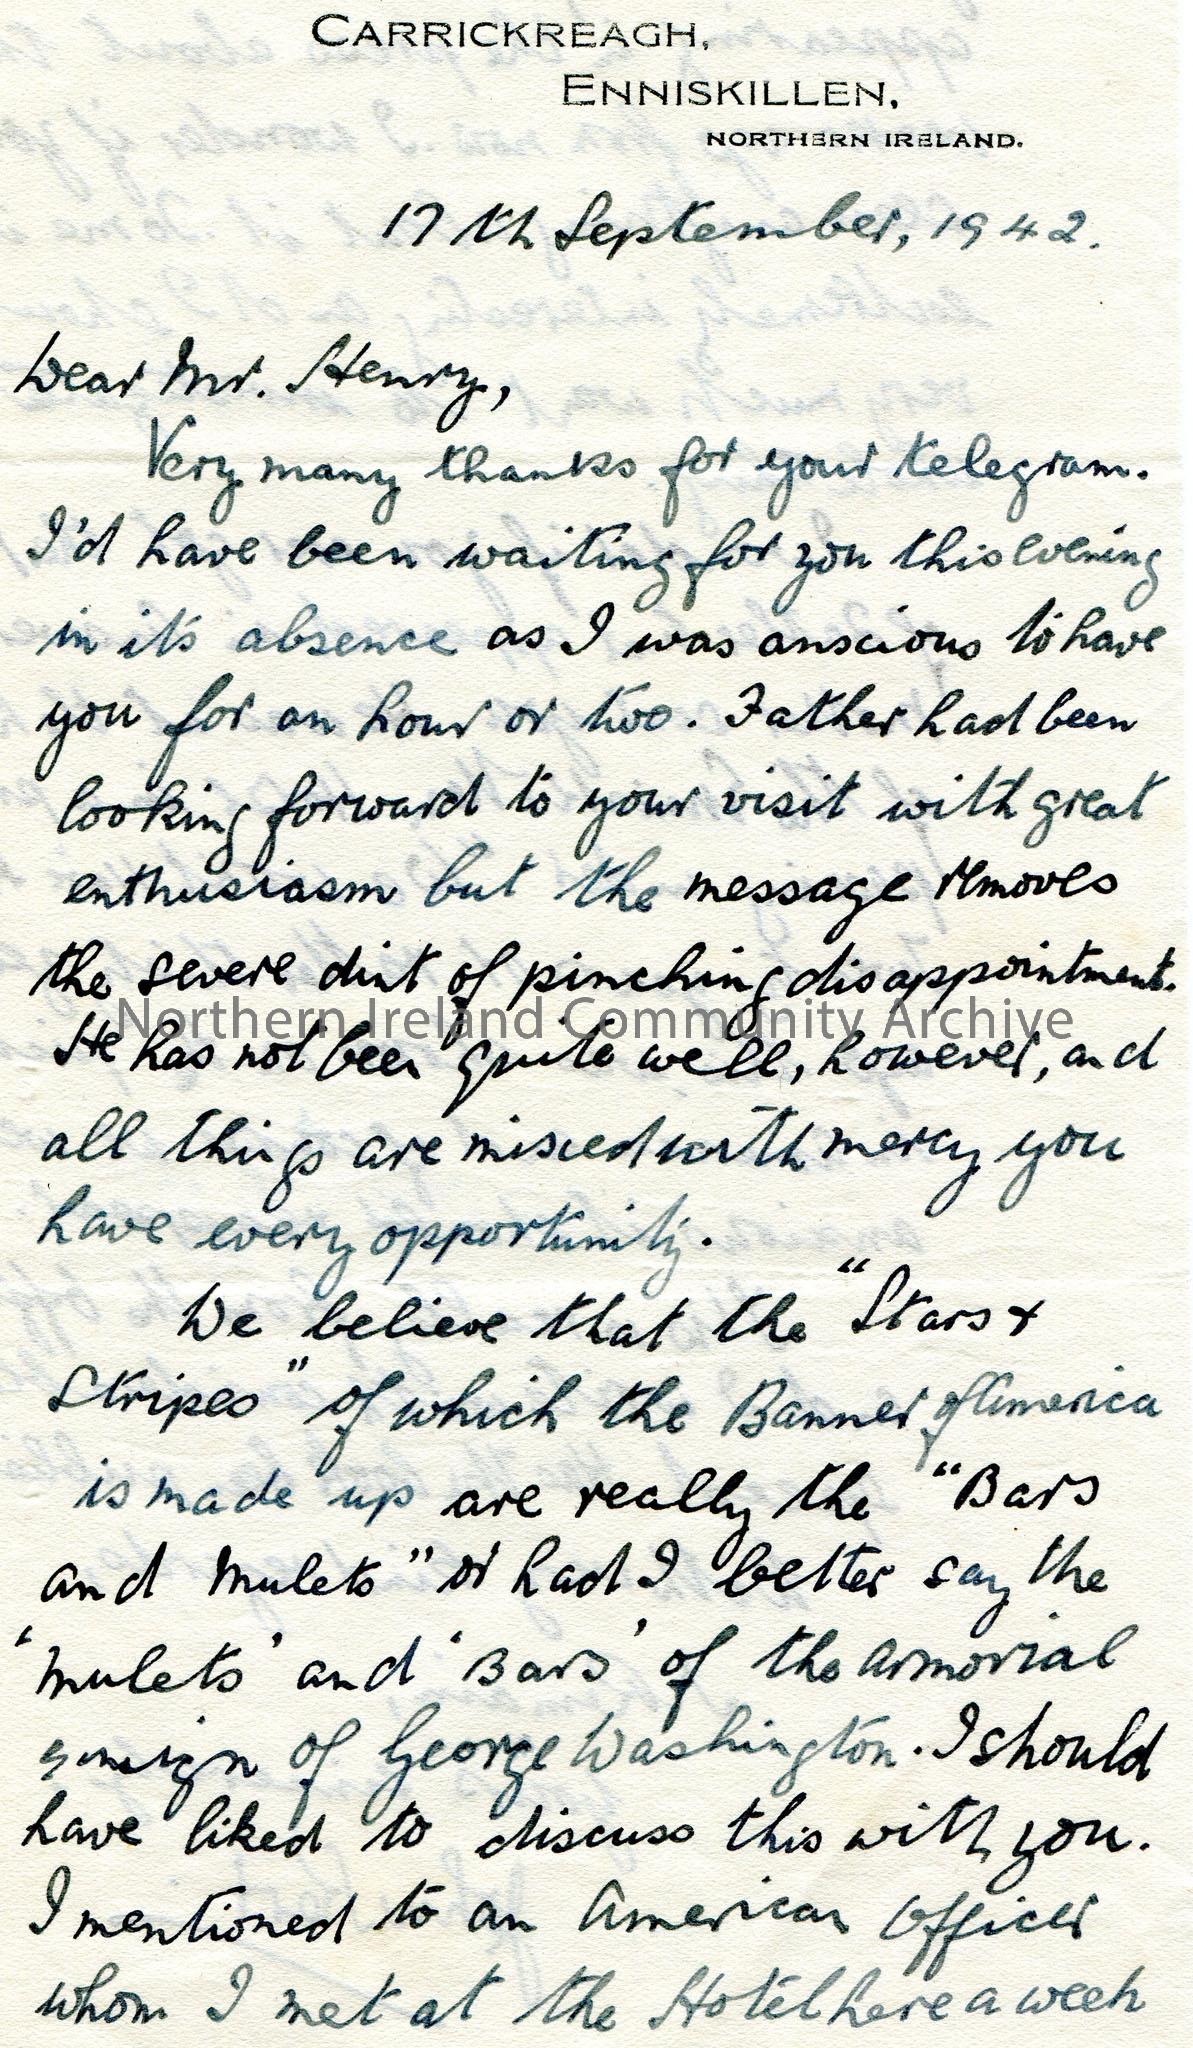 CARRICKREAGH,
ENNISKILLEN,
NORTHERN IRELAND.
17th September, 1942.
Dear Mr. Henry,
Very many thanks for your telegram.
I'd have been waiting for you this evening
in it's absence as I was anscious to have
you for an hour or two. Father had been
looking forward to your visit with great
enthusiasm but the message removes
the severe dint of pinching disappointment.
Northern Ireland Community Archive
He has not been quite well, however, and
all things are mixed with mercy you
have every opportunity.
We believe that the "Stars &
Stripes" of which the Banner of America
is made up are really the "Bars
and Mulets" or had I better say the
'Mulets' and 'Bars' of the armorial
ensign of George Washington. I should
have liked to discuss this with you.
I mentioned to an American Officer
whom I met at the Hotel here a week